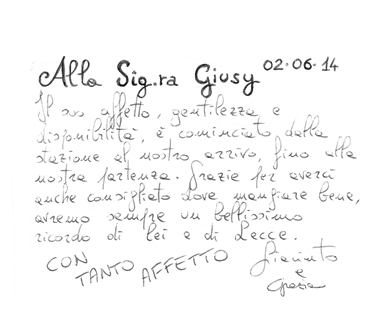 Alla Sig.ra Giusy 02.06.14
Il suo affetto, gentilezza e
disponibilità, è cominciato dalla
stazione al nostro arrivo, fino alla
nostra partenza. Grazie per averci
anche consigliato dove mangiare bene,
avremo sempre un bellissimo
ricordo di lei e di Lecce.
CON TANTO AFFETTO
Giacinto
e
Grazia